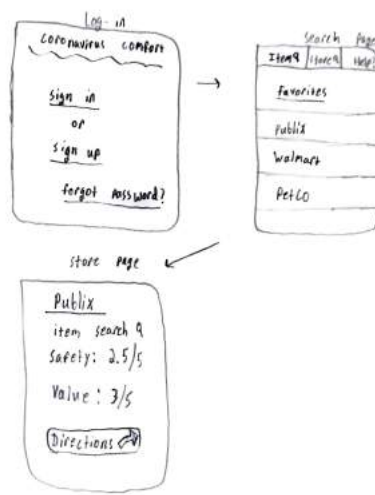 Log-in
Coronavirus comfort
sign in
or
sign up
forgot password?
search page
Item Store Help?
favorites
Publix
Walmart
PetCo
store page
Publix
item search
Safety: 2.5/5
Value: 3/5
Directions